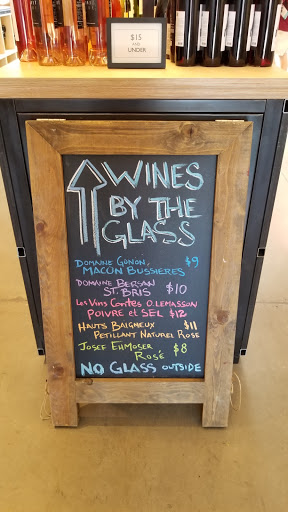 $15
AND
UNDER
WINES
BY THE
GLASS
DOMAINE GONON, $9
MACON BUSSIERES
DOMAINE BERSAN
ST. BRIS $10
Les Vins Contés O. LEMASSON
POIVRE et SEL $12
HAUTS BAIGNEUX $11
PETILLANT NATUREL ROSE
JOSEF EHMOSER $8
ROSÉ
NO GLASS OUTSIDE